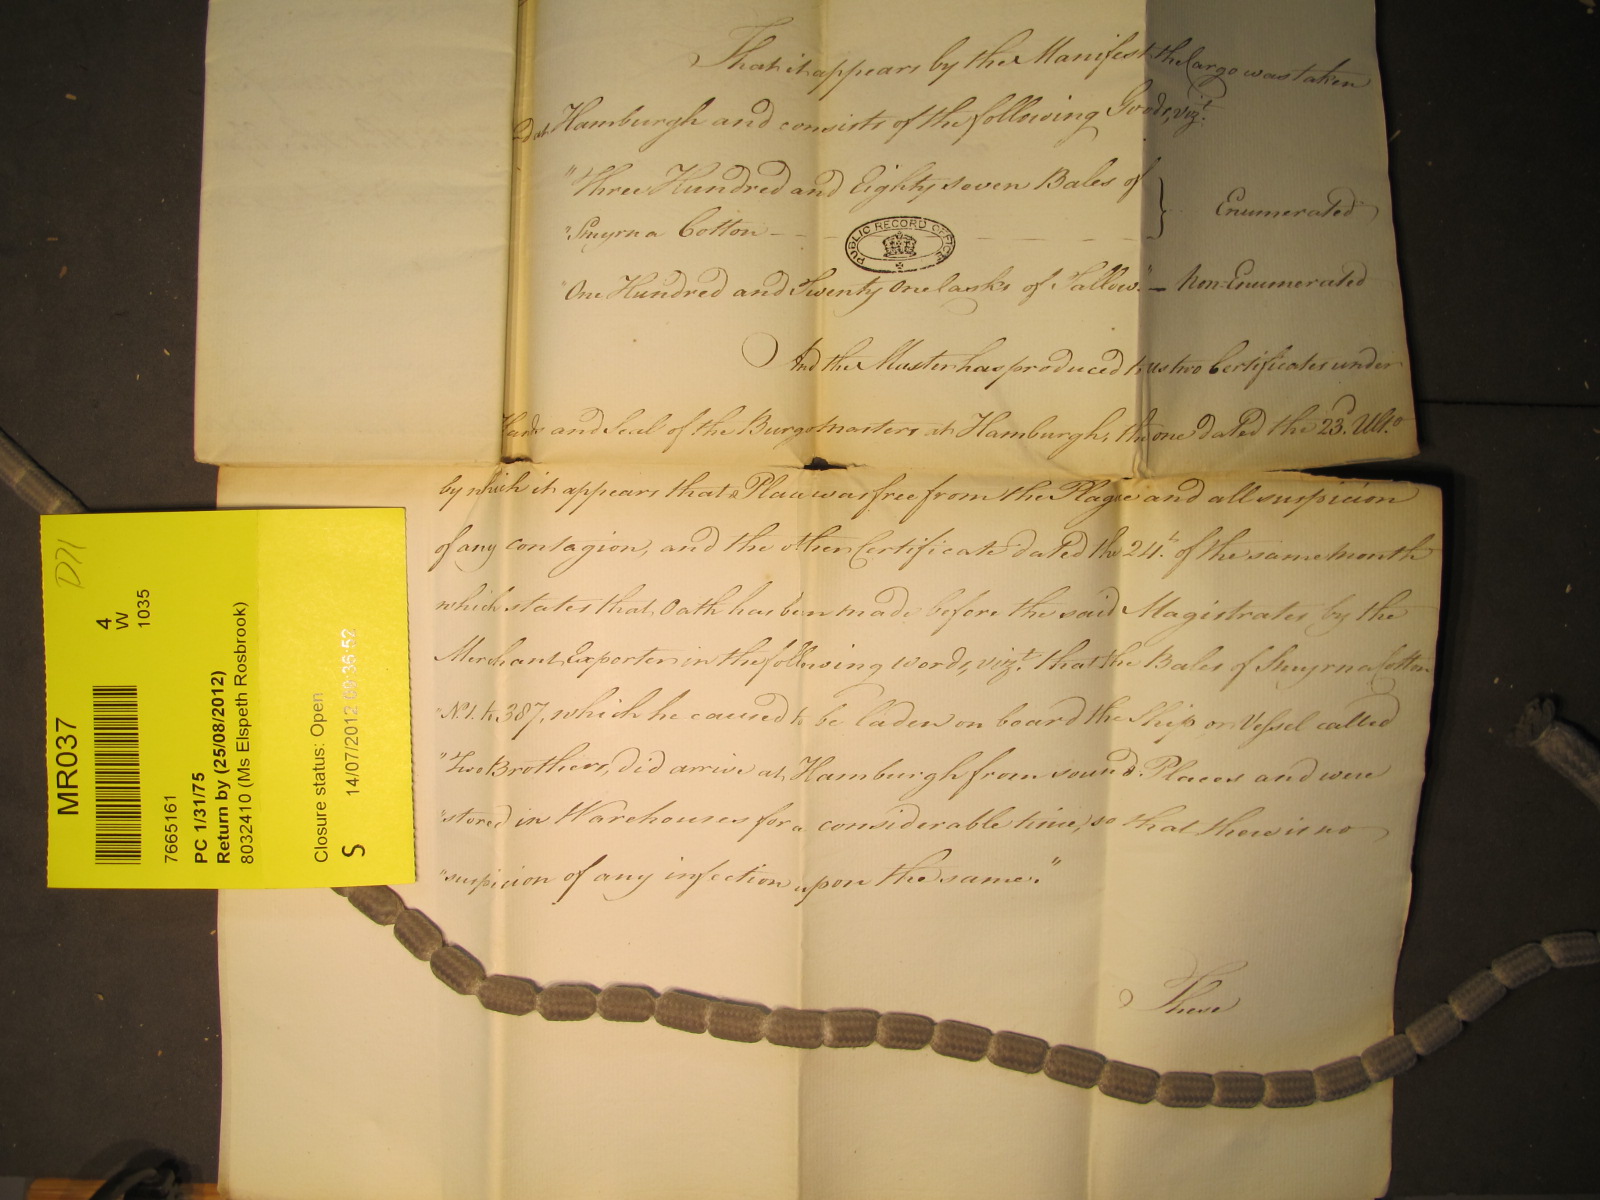 That it appears by the Manifest the Cargo was taken
in at Hamburgh and consists of the following Goods, vizt.
"Three Hundred and Eighty seven Bales of
"Smyrna Cotton —
} Enumerated
PUBLIC RECORD OFFICE
"One Hundred and Twenty One Casks of Tallow." — Non-Enumerated
And the Master has produced to us two Certificates under
Hand and Seal of the Burgomasters at Hamburgh, the one dated the 23d. Ulto.
by which it appears that Place was free from the Plague and all suspicion
of any contagion, and the other Certificate dated the 24th. of the same month
which states that Oath has been made before the said Magistrates by the
Merchant Exporter in the following words, vizt. that the Bales of Smyrna Cotton
"No. 1. to 387, which he caused to be laden on board the Ship or Vessel called
"Two Brothers, did arrive at Hamburgh from sound Places and were
"stored in Warehouses for a considerable time, so that there is no
"suspicion of any infection upon the same."
These
D71
MR037
4
W
1035
7665161
PC 1/31/75
Return by (25/08/2012)
8032410 (Ms Elspeth Rosbrook)
Closure status: Open
S 14/07/2012